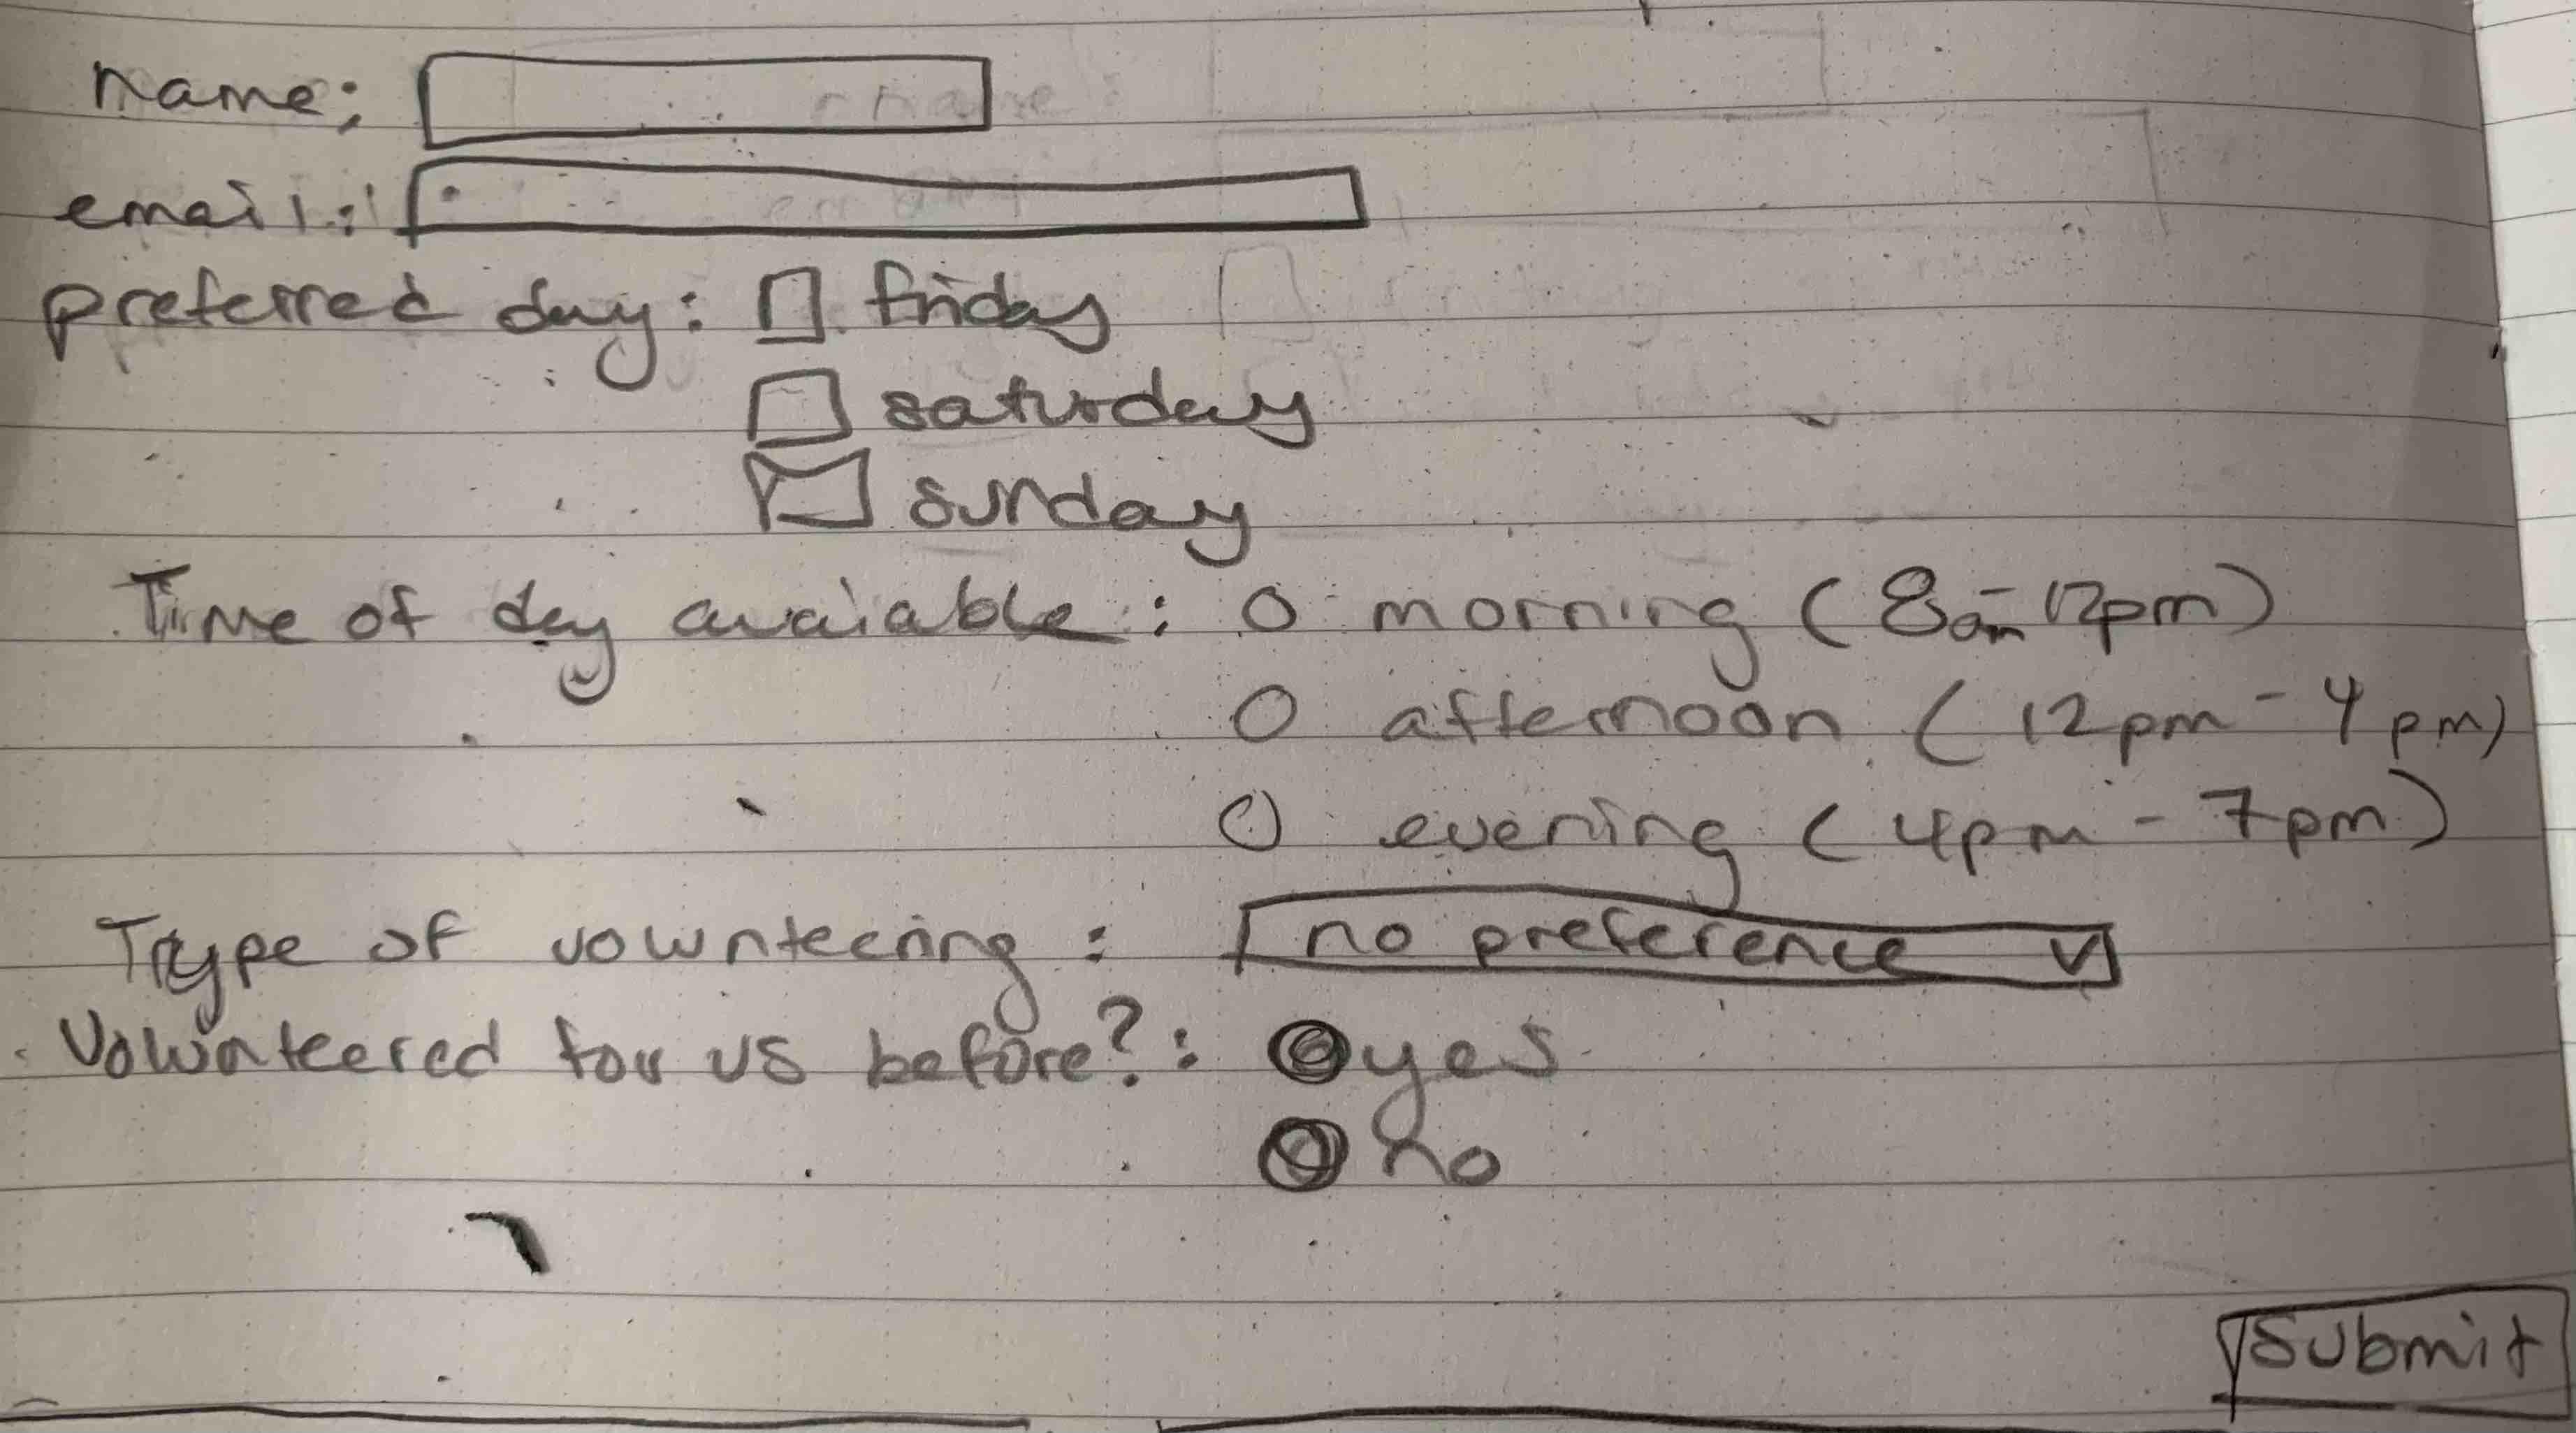 name;
email:
preferred day: friday
saturday
sunday
Time of day avaiable: morning (8am-12pm)
afternoon (12pm-4pm)
evening (4pm-7pm)
Type of volunteering: no preference
Volunteered for us before?: yes
no
Submit